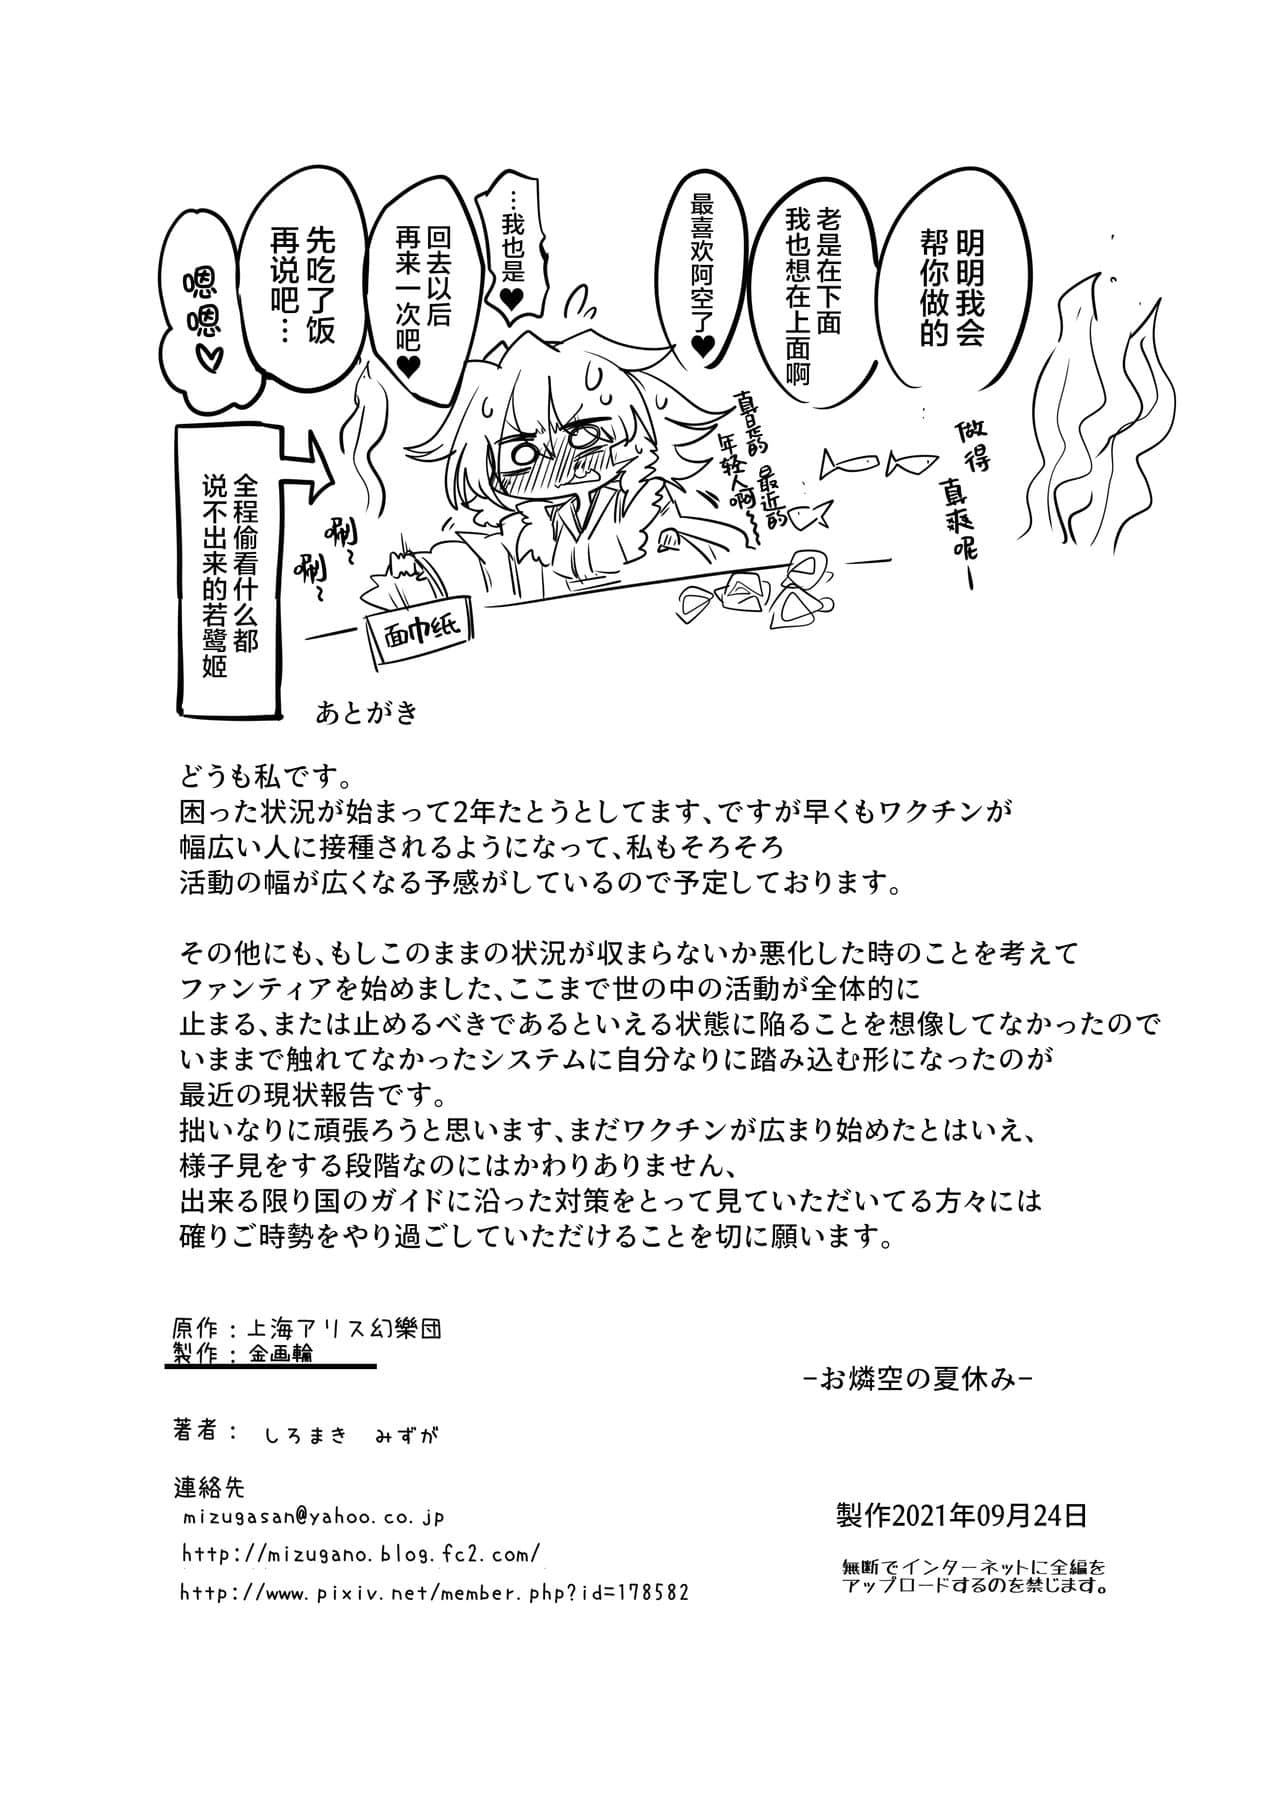 明明我会
帮你做的
老是在下面
我也想在上面啊
最喜欢阿空了♥
…我也是♥
回去以后
再来一次吧♥
先吃了饭
再说吧…
嗯嗯♡
做得
真爽呢ー
真是的
最近的
年轻人啊～
唰～
唰～
面巾纸
全程偷看什么都
说不出来的若鹭姬
あとがき
どうも私です。
困った状況が始まって2年たとうとしてます、ですが早くもワクチンが
幅広い人に接種されるようになって、私もそろそろ
活動の幅が広くなる予感がしているので予定しております。
その他にも、もしこのままの状況が収まらないか悪化した時のことを考えて
ファンティアを始めました、ここまで世の中の活動が全体的に
止まる、または止めるべきであるといえる状態に陥ることを想像してなかったので
いままで触れてなかったシステムに自分なりに踏み込む形になったのが
最近の現状報告です。
拙いなりに頑張ろうと思います、まだワクチンが広まり始めたとはいえ、
様子見をする段階なのにはかわりありません、
出来る限り国のガイドに沿った対策をとって見ていただいてる方々には
確りご時勢をやり過ごしていただけることを切に願います。
原作：上海アリス幻樂団
製作：金画輪
-お燐空の夏休み-
著者： しろまき みずが
連絡先
mizugasan@yahoo.co.jp
http://mizugano.blog.fc2.com/
http://www.pixiv.net/member.php?id=178582
製作2021年09月24日
無断でインターネットに全編を
アップロードするのを禁じます。